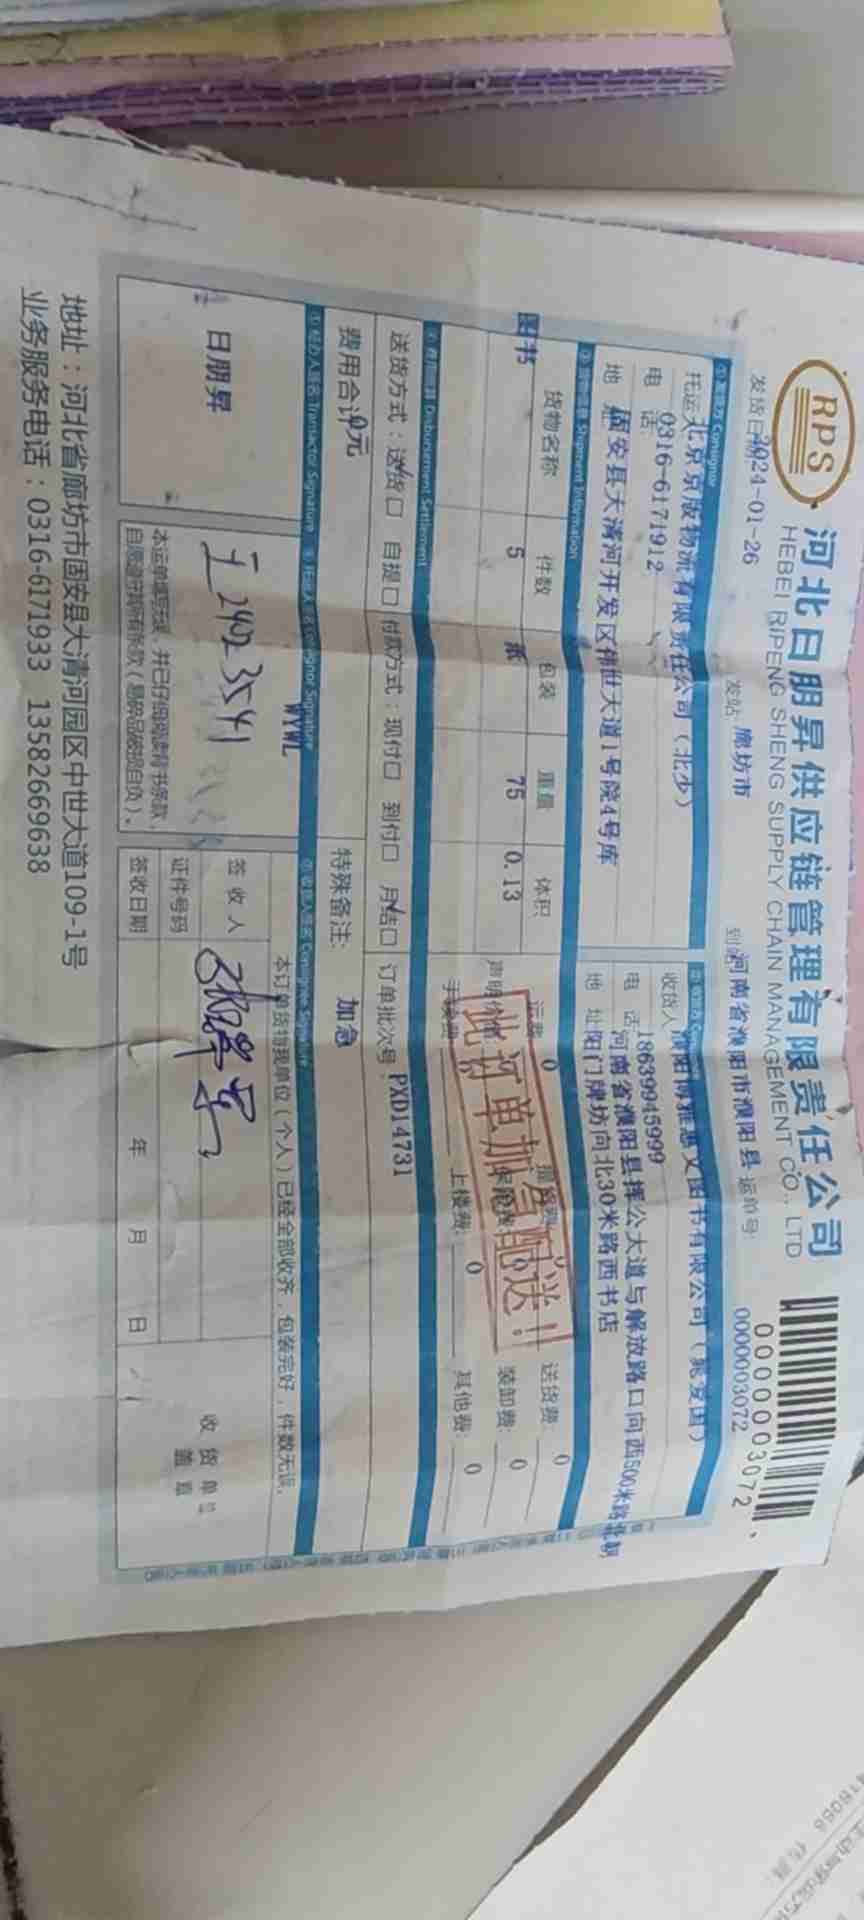 RPS
河北日朋昇供应链管理有限责任公司
HEBEI RIPENG SHENG SUPPLY CHAIN MANAGEMENT CO., LTD
0000003072
发货日期 2024-01-26 发站: 廊坊市 到站 河南省濮阳市濮阳县 运单号: 0000003072
①发货方 Consignor
托运人 北京京版物流有限责任公司(北少)
电话: 0316-6171912
地址 固安县大清河开发区伟世大道1号院4号库
收货人 濮阳博雅思文图书有限公司
电话 18639945999
河南省濮阳县挥公大道与解放路口向西500米路北朝
地址 阳门牌坊向北30米路西书店
③货物信息 Shipment Information
货物名称 件数 包装 重量 体积
图书 5 纸 75 0.13
运费 0 提货费 送货费: 0
声明价值 保险费: 0 装卸费: 0
手续费 上楼费: 0 其他费: 0
此订单加急配送!
Disbursement Settlement
送货方式:送货□ 自提□ 付款方式:现付□ 到付□ 月结□ 订单批次号: PXD14731
费用合计 0元 特殊备注: 加急
⑤经办人签名 Transactor Signature
⑥托运人签名 Consignor Signature
⑦收货人签名 Consignee Signature
日朋昇
WYWL
2423541
本运单填写无误,并已仔细阅读背书条款,
自愿遵守所有条款(易碎品破损自负)。
本订单货物我单位(个人)已经全部收齐,包装完好,件数无误。
签收人
证件号码
签收日期 年 月 日
收货单位
盖章
地址:河北省廊坊市固安县大清河园区中世大道109-1号
业务服务电话:0316-6171933 13582669638